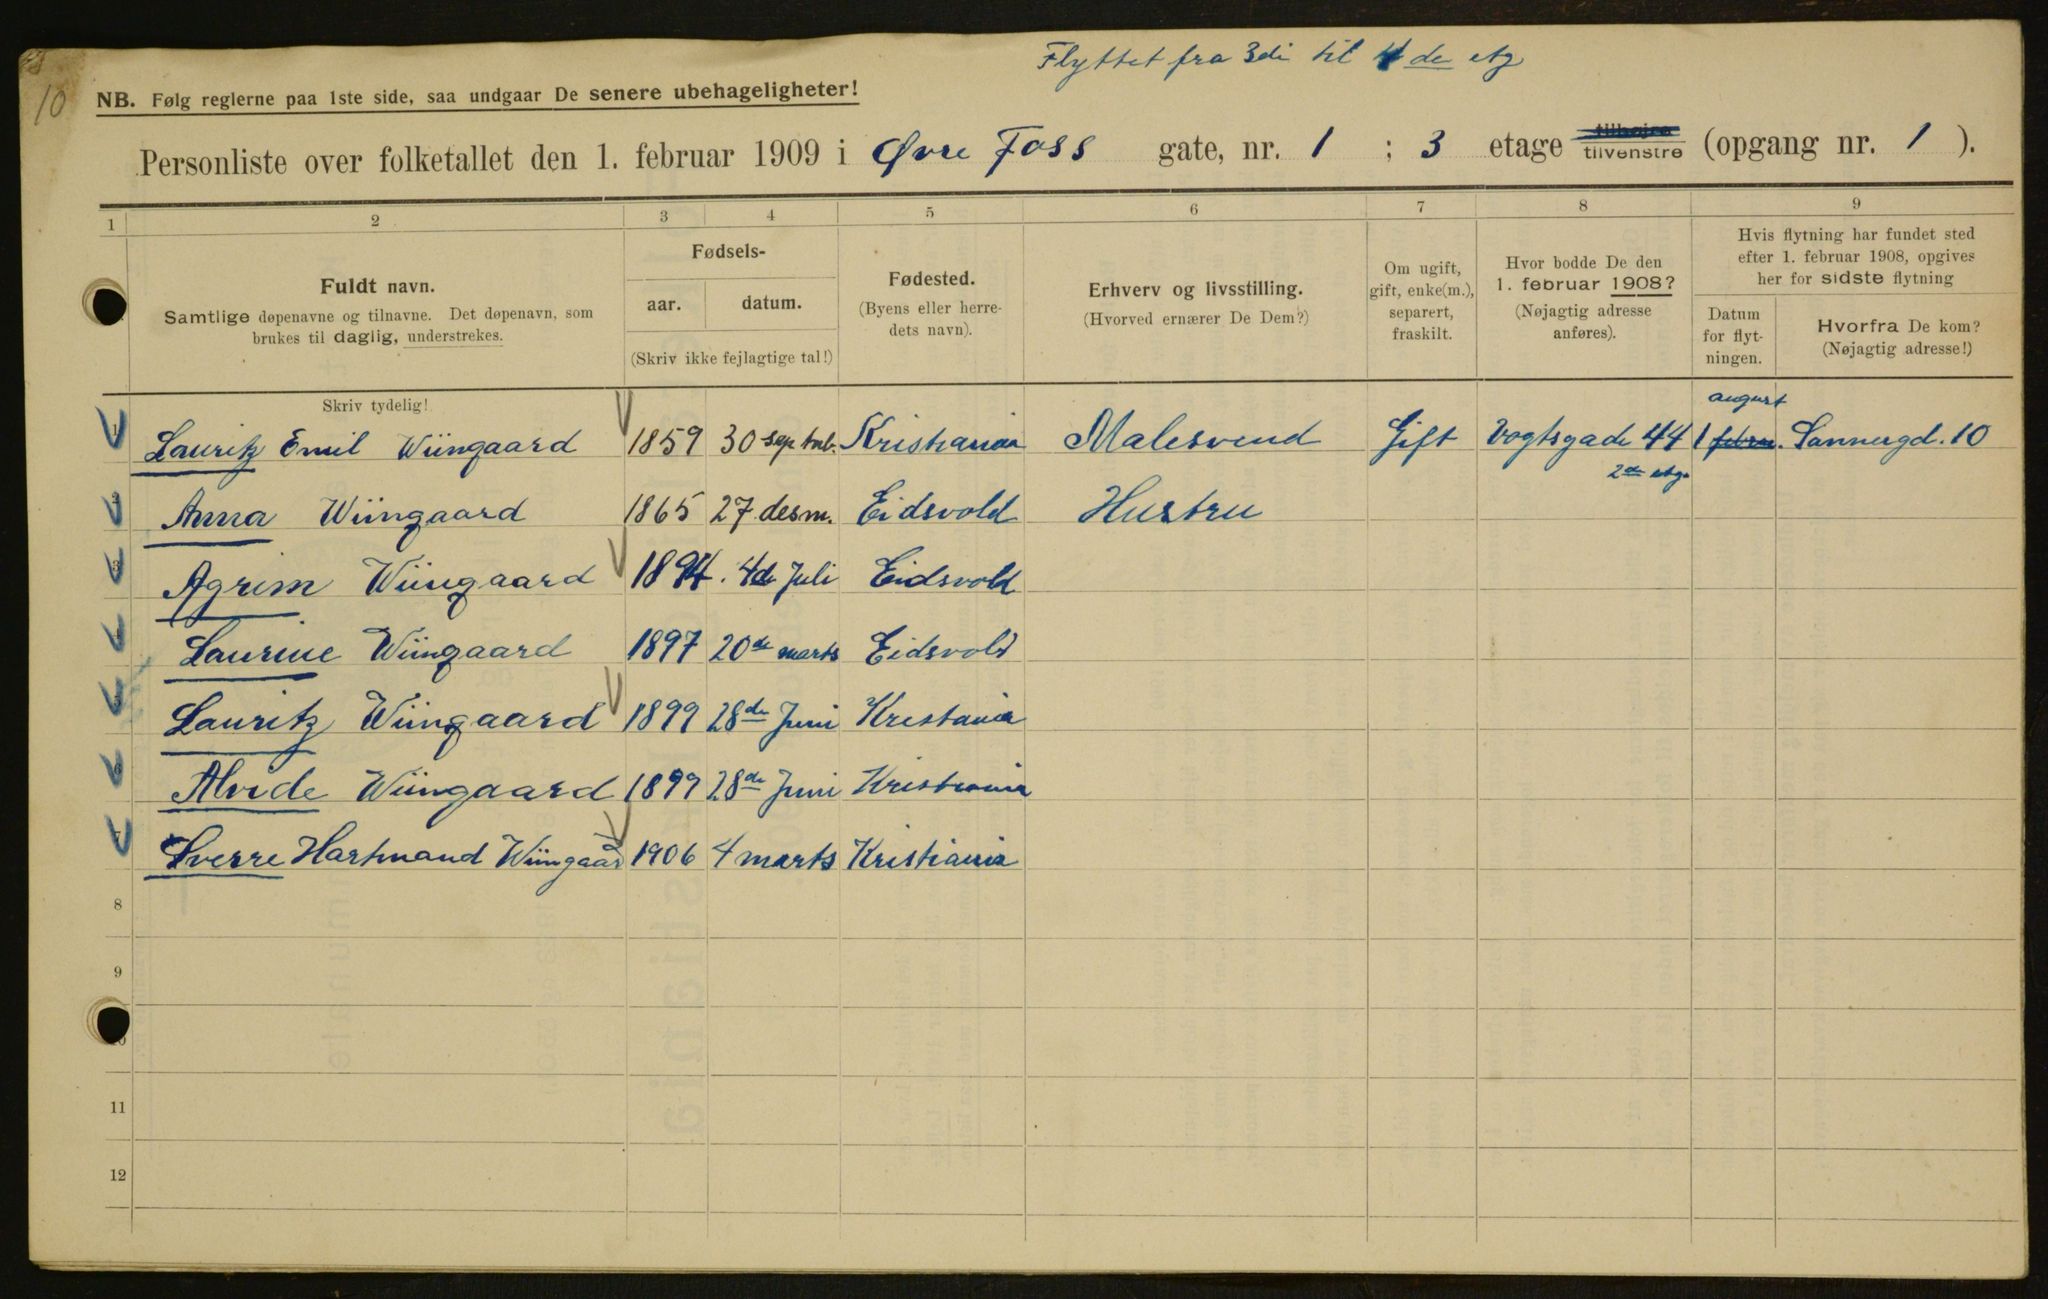 10
Flyttet fra 3di til 4de etg
NB. Følg reglerne paa 1ste side, saa undgaar De senere ubehageligheter!
Personliste over folketallet den 1. februar 1909 i Øvre Foss gate, nr. 1 ; 3 etage tilhøjre tilvenstre (opgang nr. 1 ).
1 2 3 4 5 6 7 8 9
Fuldt navn.
Samtlige døpenavne og tilnavne. Det døpenavn, som
brukes til daglig, understrekes.
Fødsels-
aar. datum.
(Skriv ikke fejlagtige tal!)
Fødested.
(Byens eller herre-
dets navn).
Erhverv og livsstilling.
(Hvorved ernærer De Dem?)
Om ugift,
gift, enke(m.),
separert,
fraskilt.
Hvor bodde De den
1. februar 1908?
(Nøjagtig adresse
anføres).
Hvis flytning har fundet sted
efter 1. februar 1908, opgives
her for sidste flytning
Datum
for flyt-
ningen.
Hvorfra De kom?
(Nøjagtig adresse!)
Skriv tydelig!
august
1 Lauritz Emil Wiingaard 1859 30 septmb. Kristiania Malesvend Gift Vogtsgade 44 1 febru. Sannergd. 10
2de etg.
2 Anna Wiingaard 1865 27 desm. Eidsvold Hustru
3 Agrim Wiingaard 1894. 4de Juli Eidsvold
4 Laurine Wiingaard 1897 20de marts Eidsvold
5 Lauritz Wiingaard 1899 28de Juni Kristania
6 Alvide Wiingaard 1899 28de Juni Kristiania
7 Sverre Hartmand Wiingaard 1906 4 marts Kristiania
8
9
10
11
12